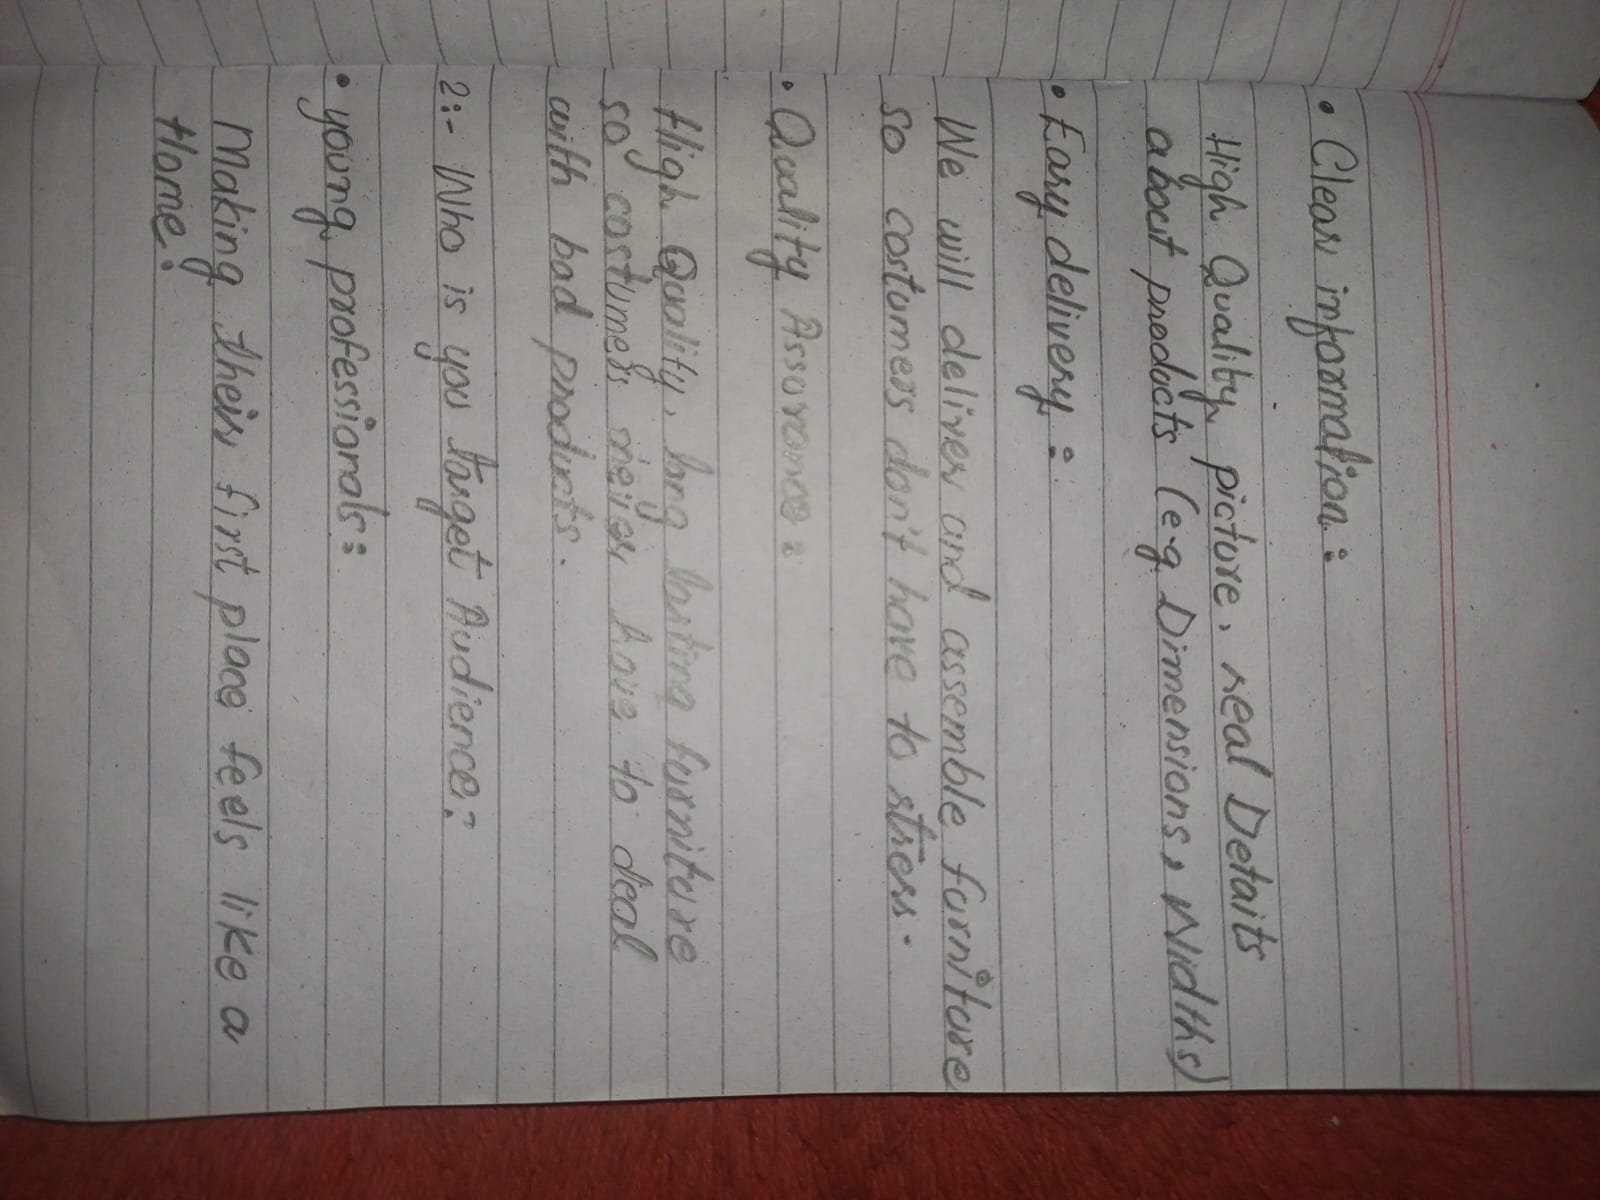 • Clear information:
High Quality picture, real Details
about products (e.g Dimensions, Widths)
• Easy delivery:
We will deliver and assemble furniture
so costumers don't have to stress.
• Quality Assurance:
High Quality, long lasting furniture
so costumers never have to deal
with bad products.
2:- Who is you target Audience:
• young professionals:
Making their first place feels like a
Home: